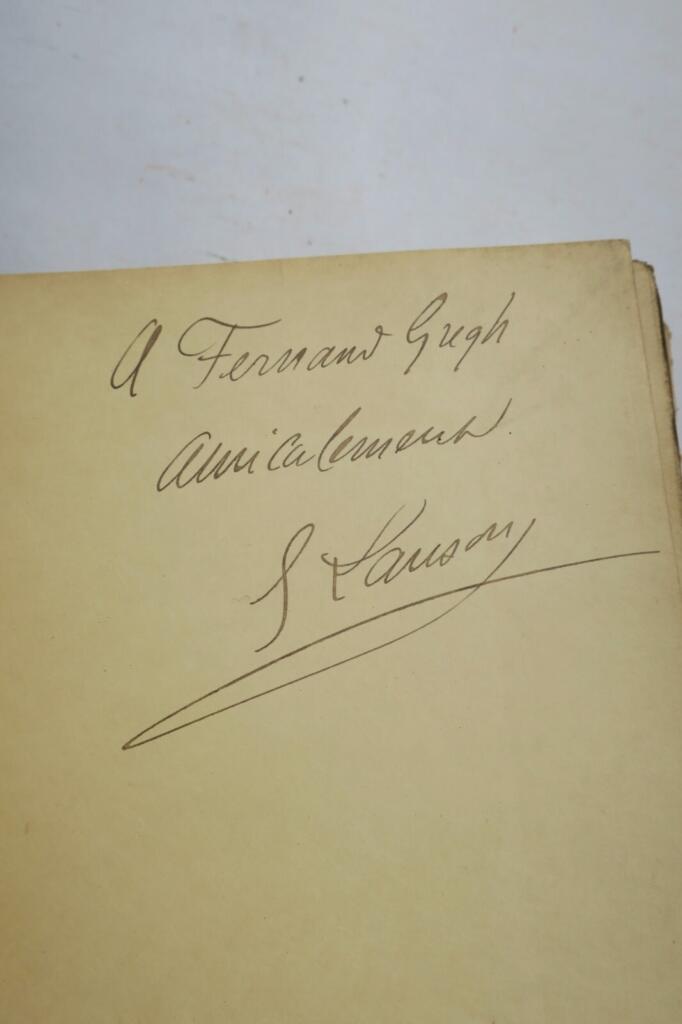 A Fernand Gregh
amicalement
G Lanson